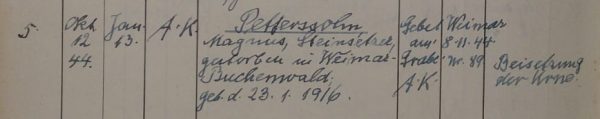 5. Okt. Jan. A.K. Petterssohn Gebet Weimar
12 13. Magnus, Steinsetzer, am 8.11.44
44. gestorben in Weimar- Grabe Nr. 89 Beisetzung
Buchenwald, A.K. der Urne.
geb. d. 23.1.1916.